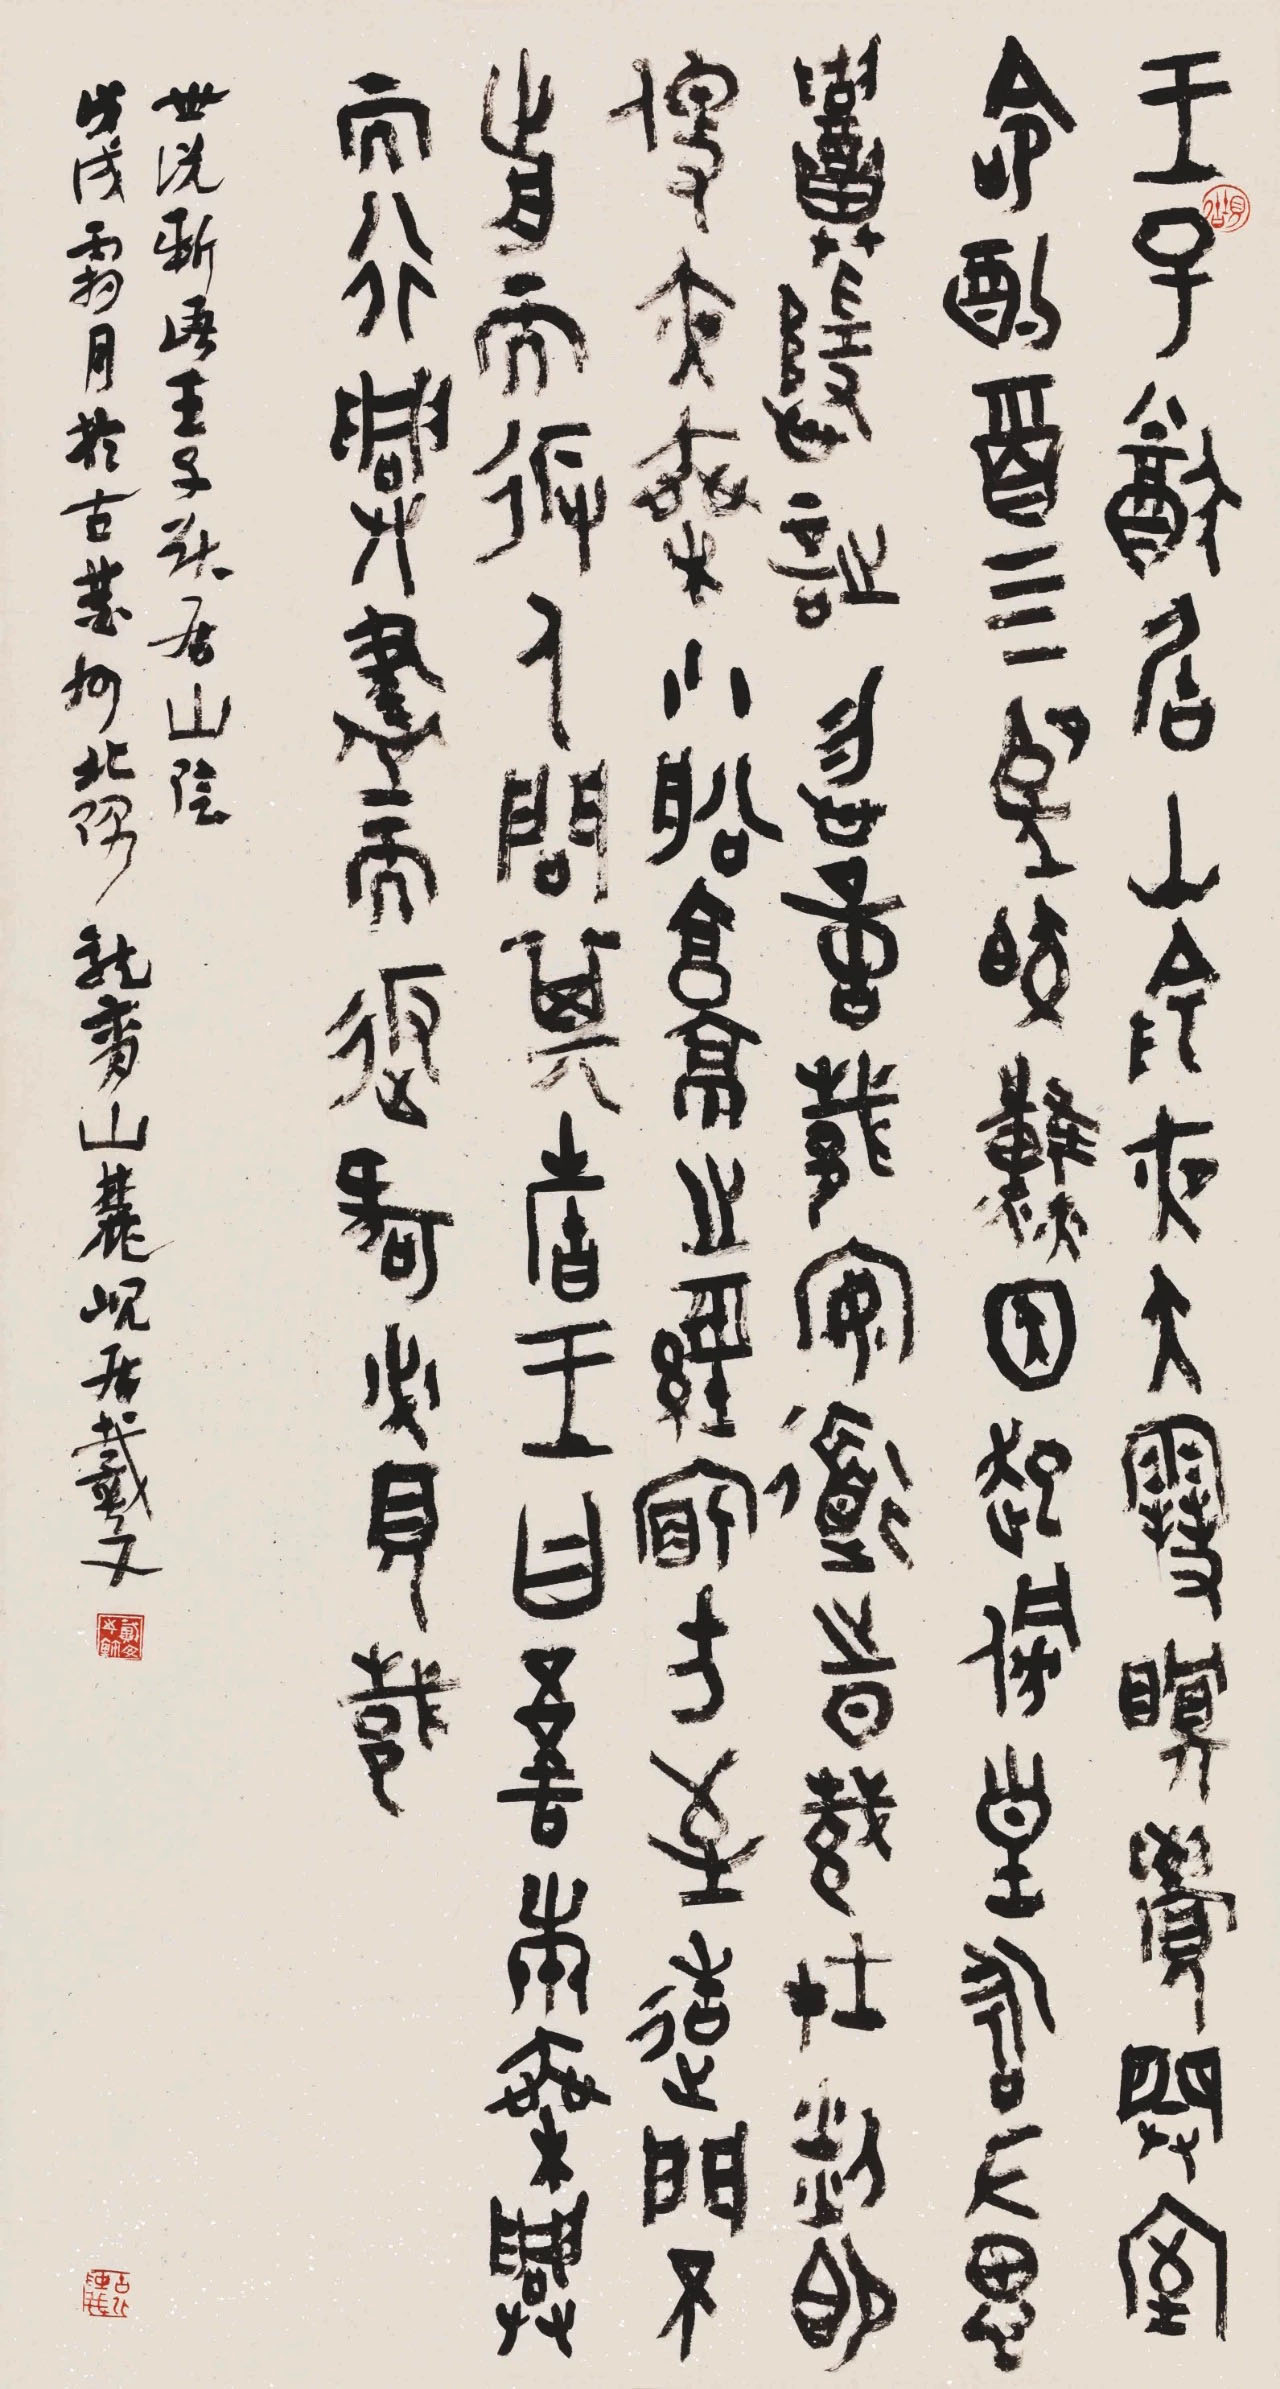 王子猷居山陰夜大雪眠覺開室
命酌酒四望皎然因起彷徨詠左思
招隱詩忽憶戴安道時戴在剡即
便夜乘小船就之經宿方至造門不
前而返人問其故王曰吾本乘興
而行興盡而返何必見戴
世說新語王子猷居山陰
戊戌霜月於古州北隅龍山麓峴居戴文